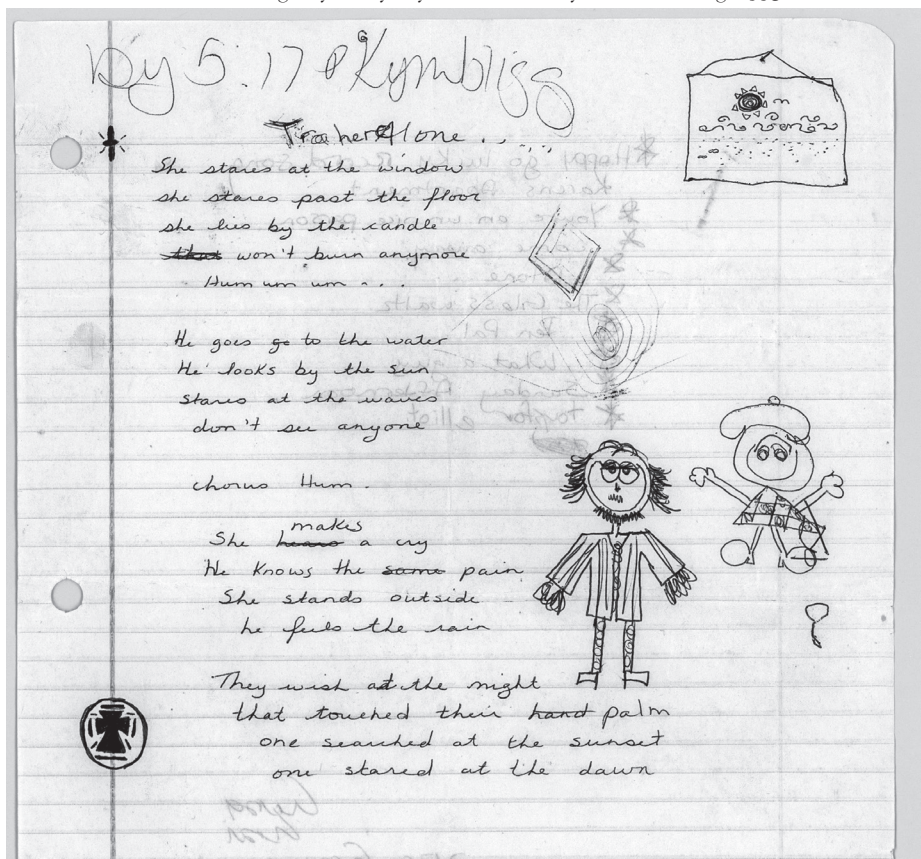 By 5.17 & Kymbliss
Alone . . . . . .
She stares at the window
she stares past the floor
she lies by the candle
that won't burn anymore
Hum um um . . .
He goes go to the water
He looks by the sun
stares at the waves
don't see anyone
chorus Hum .
makes
She hears a cry
He knows the same pain
She stands outside
he feels the rain
They wish at the night
that touched their hand palm
one searched at the sunset
one stared at the dawn